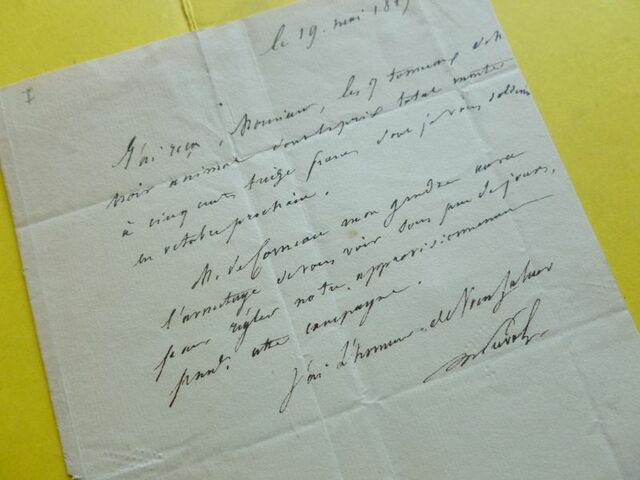 I
le 19. mai 18
J'ai reçu, Monsieur, les 7 tonneaux de
noir animal dont le prix total monte
à cinq cents treize francs dont je vous solderai
en octobre prochain.
M. de Corneau mon gendre aura
l'avantage de vous voir sous peu de jours,
pour régler notre approvisionnement
pend. cette campagne.
J'ai l'honneur de vous saluer